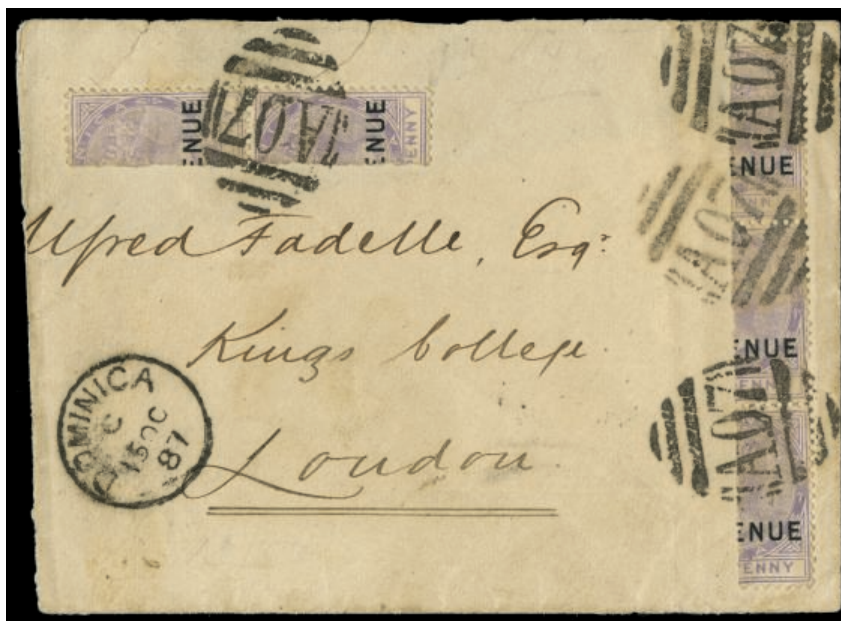 ENUE ENUE
PENNY
A07
A07
ENUE
A07
ENUE
PENNY
A07
ENUE
PENNY
Alfred Fadelle, Esqr.
Kings College
London
DOMINICA
C
15 OC
87